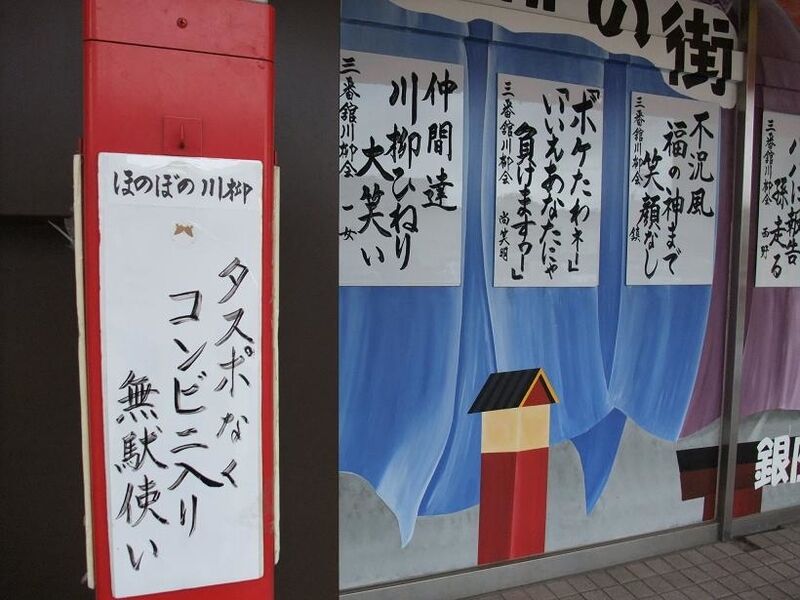 ほのぼの川柳
タスポなく
コンビニ入り
無駄使い
の街
仲間達
川柳ひねり
大笑い
三番館川柳会 一女
「ボケたわネー」
「いいえあなたにゃ
負けますワー」
三番館川柳会 尚笑明
不況風
福の神まで
笑顔なし
三番館川柳会 鎮
パパに報告
孫走る
三番館川柳会 西野
銀